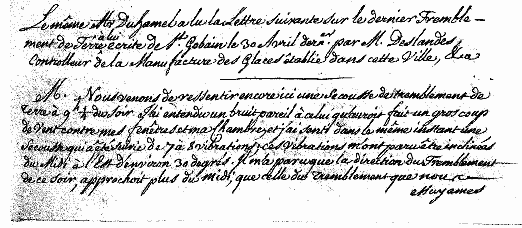 Le même Mr Duhamel a lu la Lettre Suivante sur le dernier Tremble-
ment de Terre à lui écrite de St Gobain le 30 Avril dern.er par M. Deslandes
Controlleur de la Manufacture des Glaces établie dans cette Ville, &a
M. Nous venons de ressentir encore ici une Secousse de tremblement de
Terre à 9h ¼ du Soir. J'ai entendu un bruit pareil à celui qu'auroit fait un gros coup
de Vent contre mes fenêtres et ma chambre, et j'ai senti dans le même instant une
Secousse qui a été suivie de 7 à 8 vibrations; ces vibrations m'ont paru être inclinées
du Midi à l'Est d'environ 30 degrés. Il m'a paru que la direction du Tremblement
de ce soir, approchoit plus du midi, que celle du tremblement que nous
essuyames